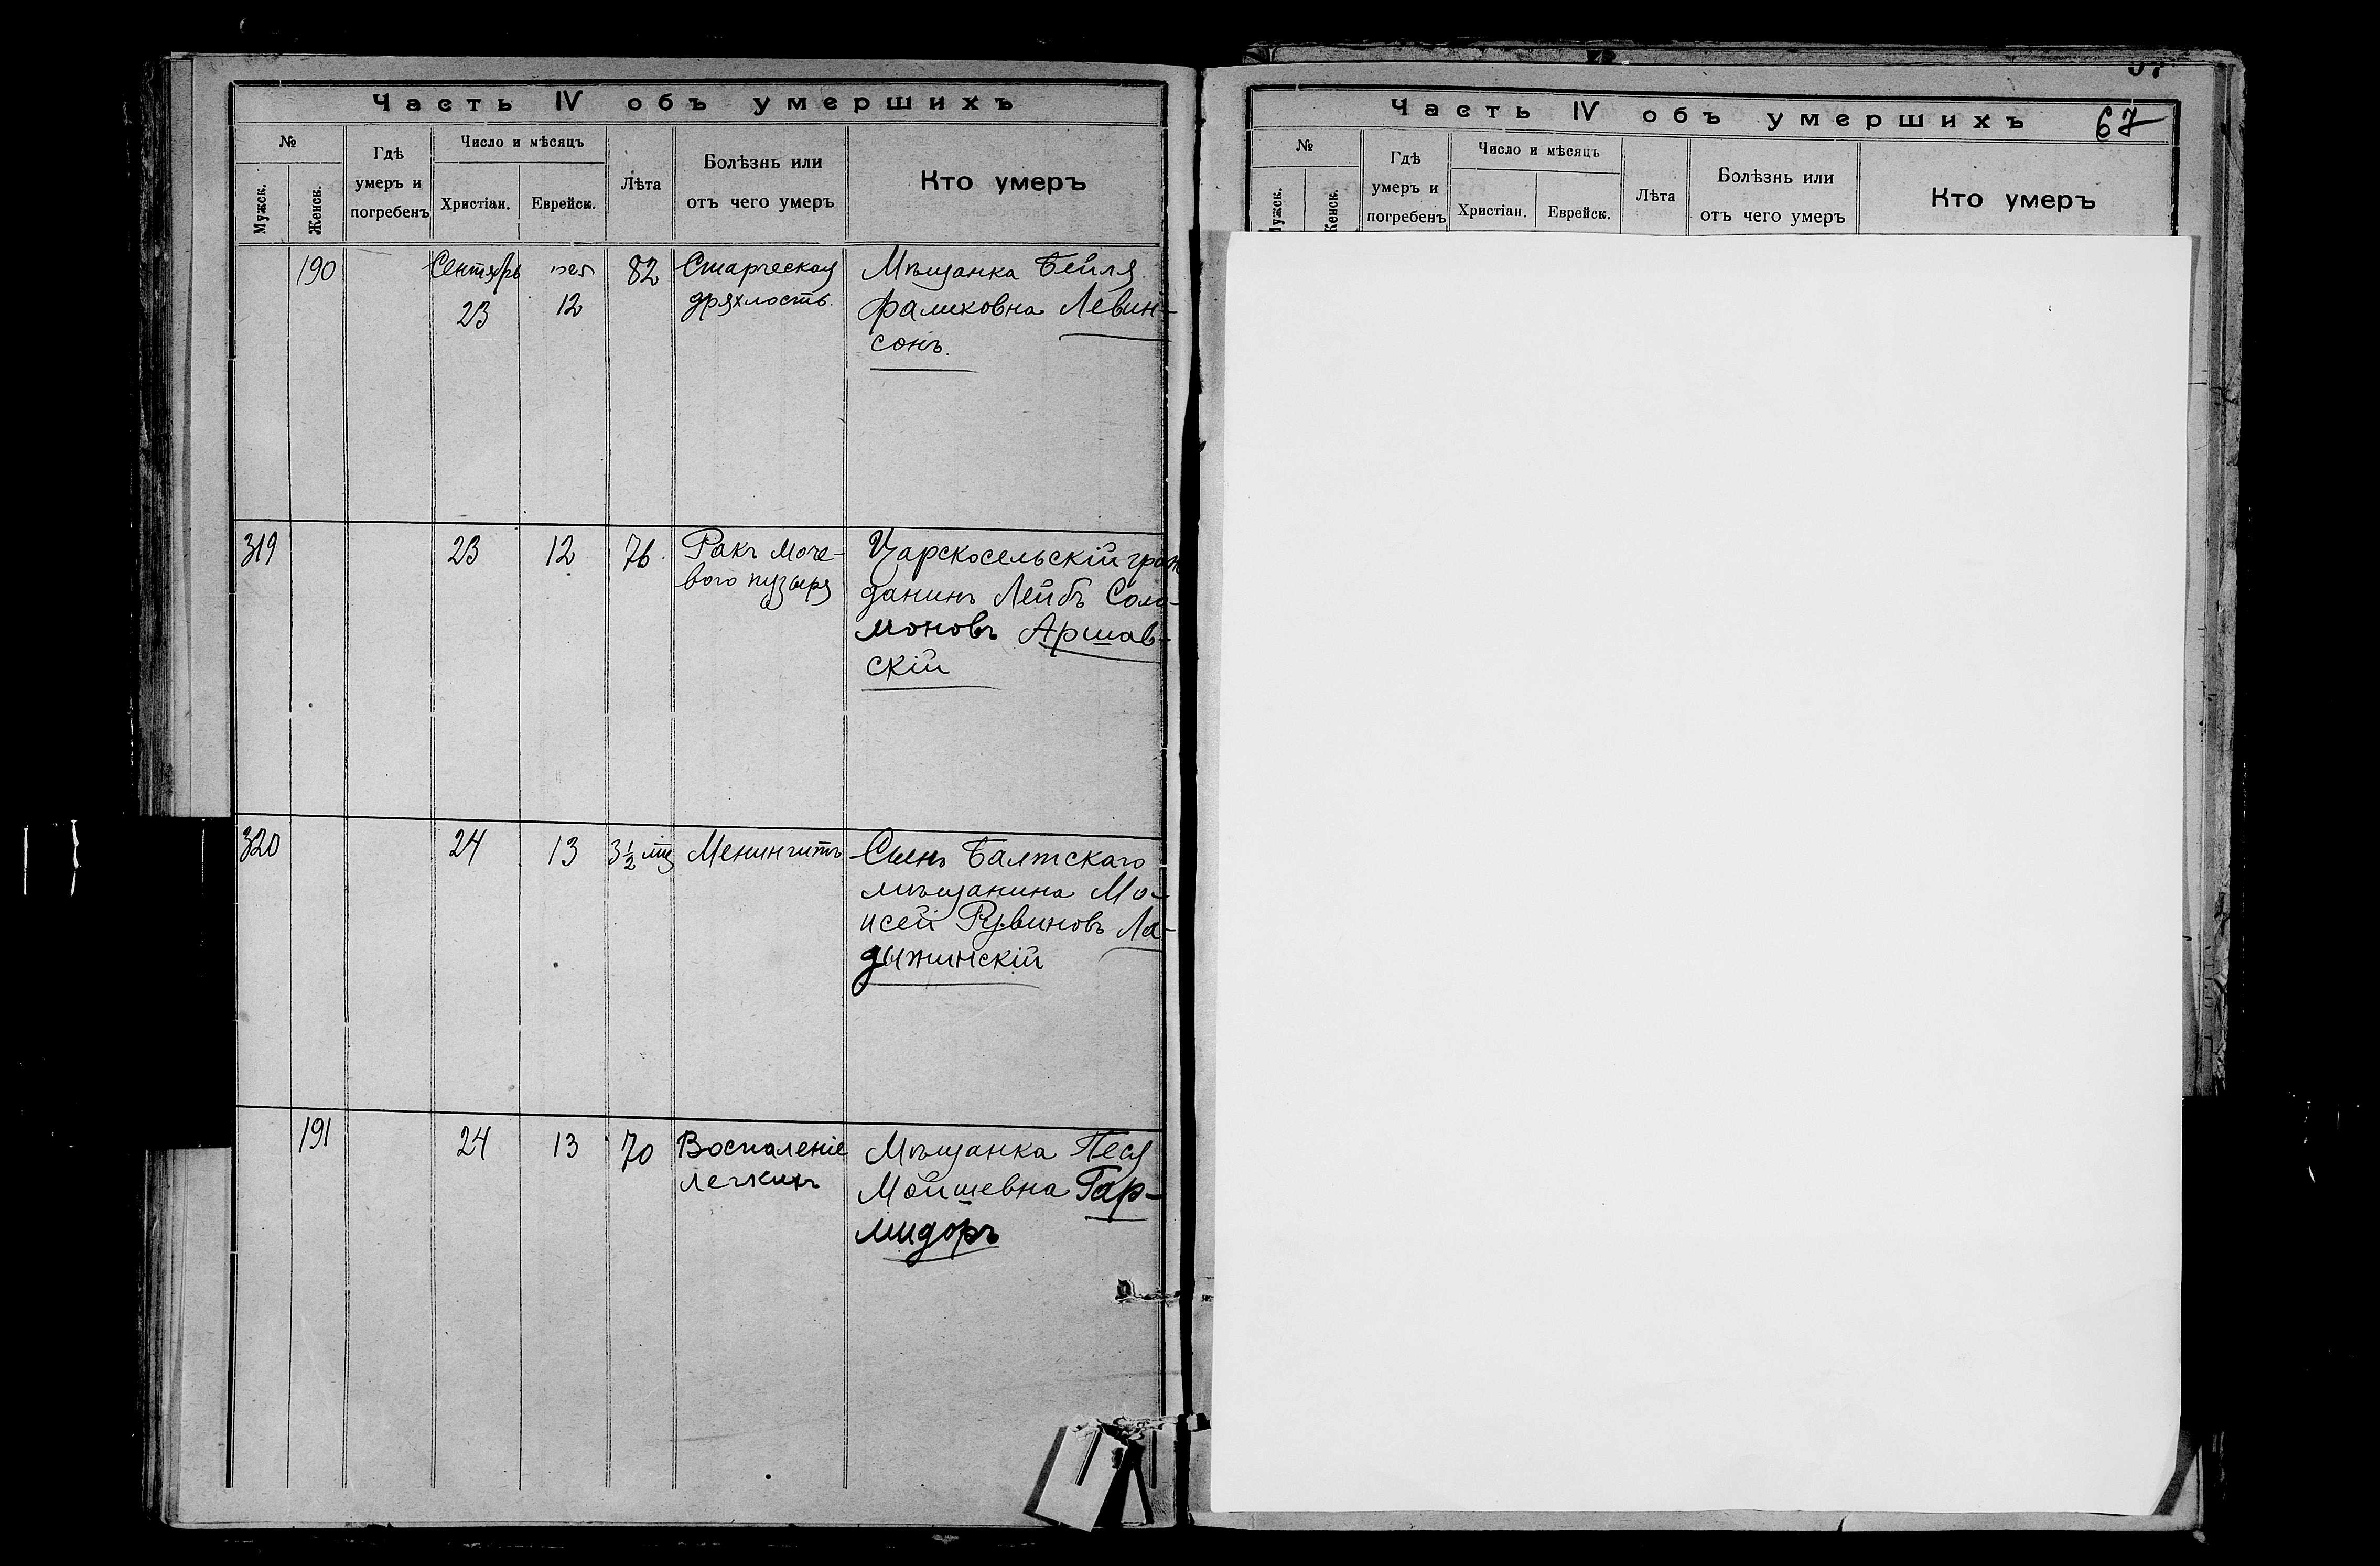 Часть IV объ умершихъ
№
Мужск.
Женск.
Гдѣ
умеръ и
погребенъ
Число и мѣсяцъ
Христіан.
Еврейск.
Лѣта
Болѣзнь или
отъ чего умеръ
Кто умеръ
190
Сентябрь
23
12
82
Старческая
дряхлость.
Мѣщанка Бейля
Фалиховна Левин-
сонъ.
319
23
12
76.
Ракъ моче-
вого пузыря
Царскосельскій граж
данинъ Лейбъ Соло-
моновъ Аршав-
скій
320
24
13
3½ мѣс
Менингитъ
Сынъ Балтскаго
мѣщанина Мо-
исей Рувиновъ Ла-
дыжинскій
191
24
13
70
Воспаленіе
легкихъ
Мѣщанка Песя
Мойшевна Гар-
мидоръ
Часть IV объ умершихъ
67
№
Мужск.
Женск.
Гдѣ
умеръ и
погребенъ
Число и мѣсяцъ
Христіан.
Еврейск.
Лѣта
Болѣзнь или
отъ чего умеръ
Кто умеръ